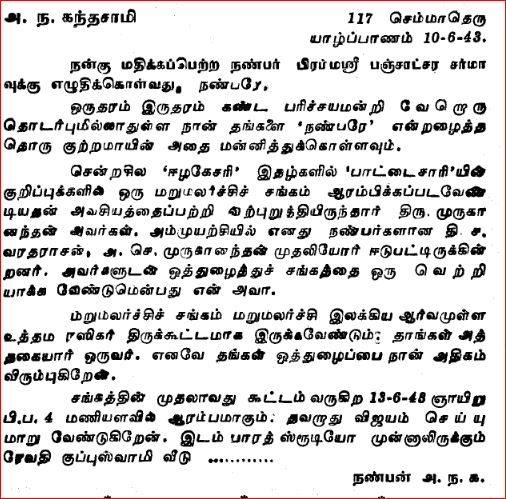 அ. ந. கந்தசாமி 117 செம்மாதெரு
யாழ்ப்பாணம் 10-6-43.
நன்கு மதிக்கப்பெற்ற நண்பர் பிரம்மஸ்ரீ பஞ்சாட்சர சர்மா
வுக்கு எழுதிக்கொள்வது, நண்பரே,
ஒருதரம் இருதரம் கண்ட பரிச்சயமன்றி வேறொரு
தொடர்புமில்லாதுள்ள நான் தங்களை 'நண்பரே' என்றழைத்த
தொரு குற்றமாயின் அதை மன்னித்துக்கொள்ளவும்.
சென்றசில 'ஈழகேசரி' இதழ்களில் 'பாட்டைசாரி'யின்
குறிப்புக்களில் ஒரு மறுமலர்ச்சிச் சங்கம் ஆரம்பிக்கப்படவேண்
டியதன் அவசியத்தைப்பற்றி வற்புறுத்தியிருந்தார் திரு. முருகா
னந்தன் அவர்கள். அம்முயற்சியில் எனது நண்பர்களான தி. ச.
வரதராசன், அ. செ. முருகானந்தன் முதலியோர் ஈடுபட்டிருக்கின்
றனர். அவர்களுடன் ஒத்துழைத்துச் சங்கத்தை ஒரு வெற்றி
யாக்க வேண்டுமென்பது என் அவா.
மறுமலர்ச்சிச் சங்கம் மறுமலர்ச்சி இலக்கிய ஆர்வமுள்ள
உத்தம ரஸிகர் திருக்கூட்டமாக இருக்கவேண்டும்; தாங்கள் அத்
தகையார் ஒருவர். எனவே தங்கள் ஒத்துழைப்பை நான் அதிகம்
விரும்புகிறேன்.
சங்கத்தின் முதலாவது கூட்டம் வருகிற 13-6-43 ஞாயிறு
பி.ப. 4 மணியளவில் ஆரம்பமாகும். தவறாது விஜயம் செய்யு
மாறு வேண்டுகிறேன். இடம் பாரத் ஸ்ரூடியோ முன்னாலிருக்கும்
ரேவதி குப்புஸ்வாமி வீடு ............
நண்பன் அ. ந. க.